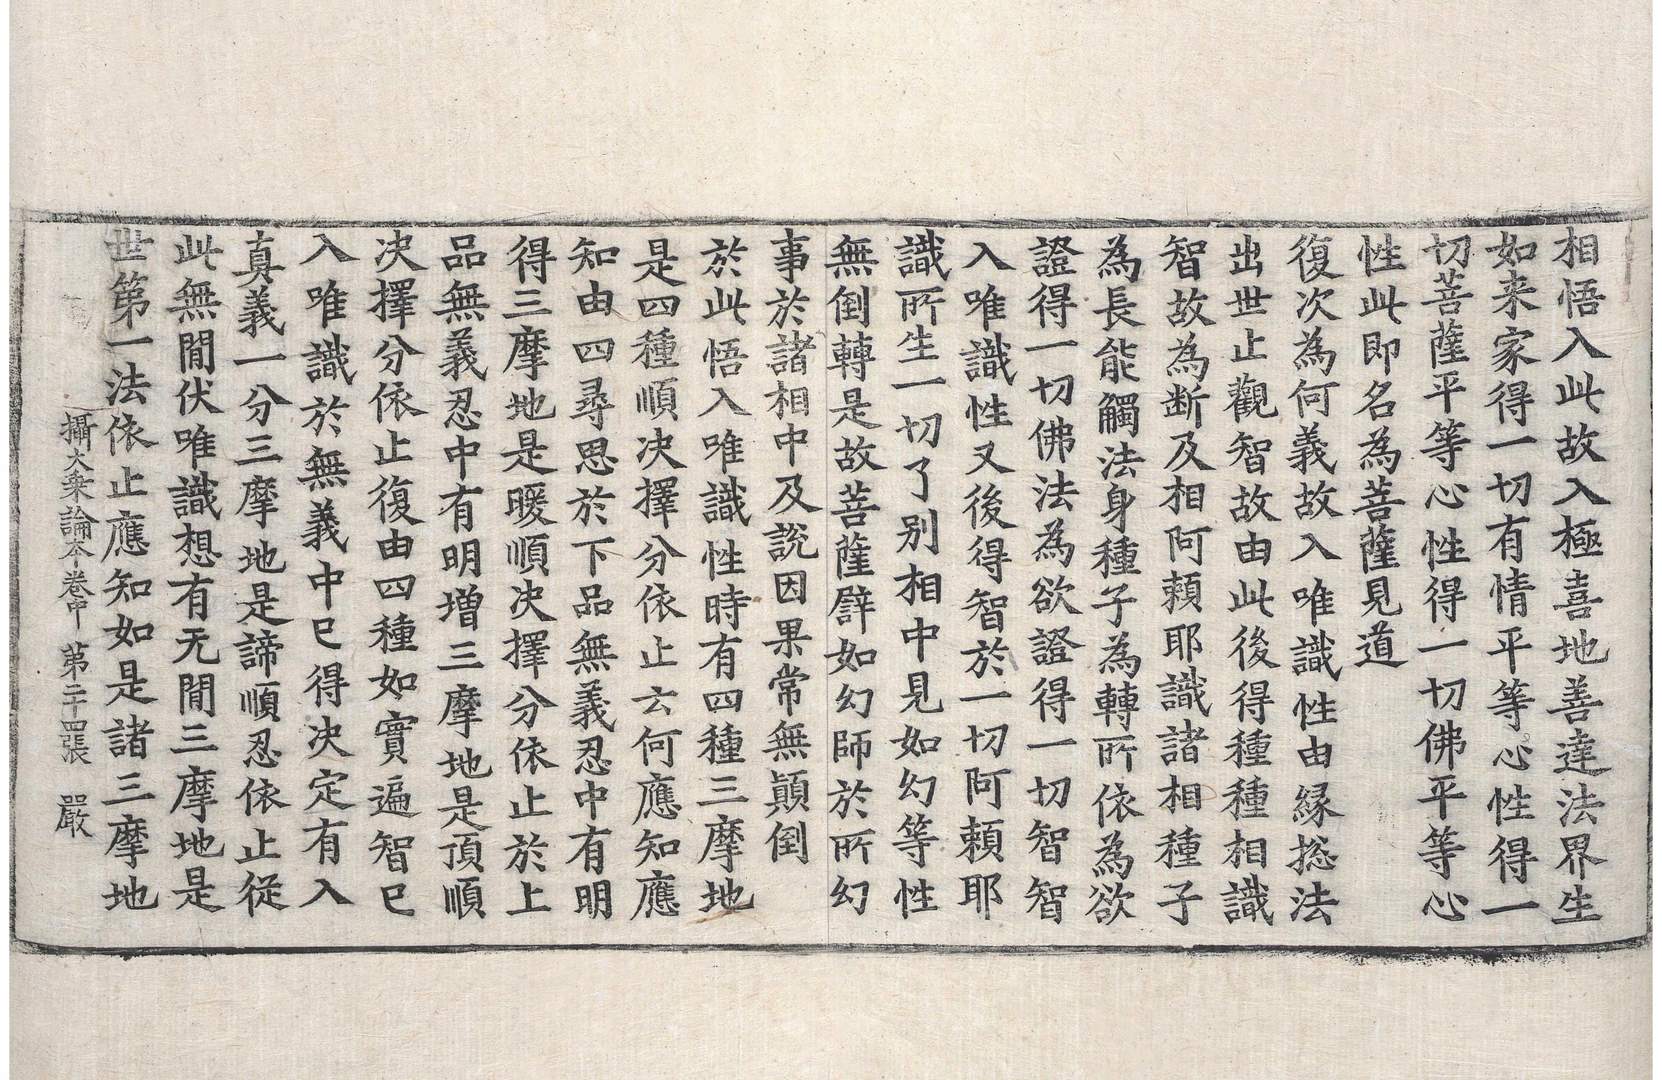 相悟入此故入極喜地善達法界生
如来家得一切有情平等心性得一
切菩薩平等心性得一切佛平等心
性此即名為菩薩見道
復次為何義故入唯識性由緣捴法
出世止觀智故由此後得種種相識
智故為断及相阿頼耶識諸相種子
為長能觸法身種子為轉所依為欲
證得一切佛法為欲證得一切智智
入唯識性又後得智於一切阿頼耶
識所生一切了别相中見如幻等性
無倒轉是故菩薩譬如幻師於所幻
事於諸相中及説因果常無顛倒
於此悟入唯識性時有四種三摩地
是四種順决擇分依止云何應知應
知由四尋思於下品無義忍中有明
得三摩地是暖順决擇分依止於上
品無義忍中有明增三摩地是頂順
决擇分依止復由四種如實遍智已
入唯識於無義中已得决定有入
真義一分三摩地是諦順忍依止從
此無間伏唯識想有无間三摩地是
世第一法依止應知如是諸三摩地
攝大乗論本卷中 第二十四張 嚴